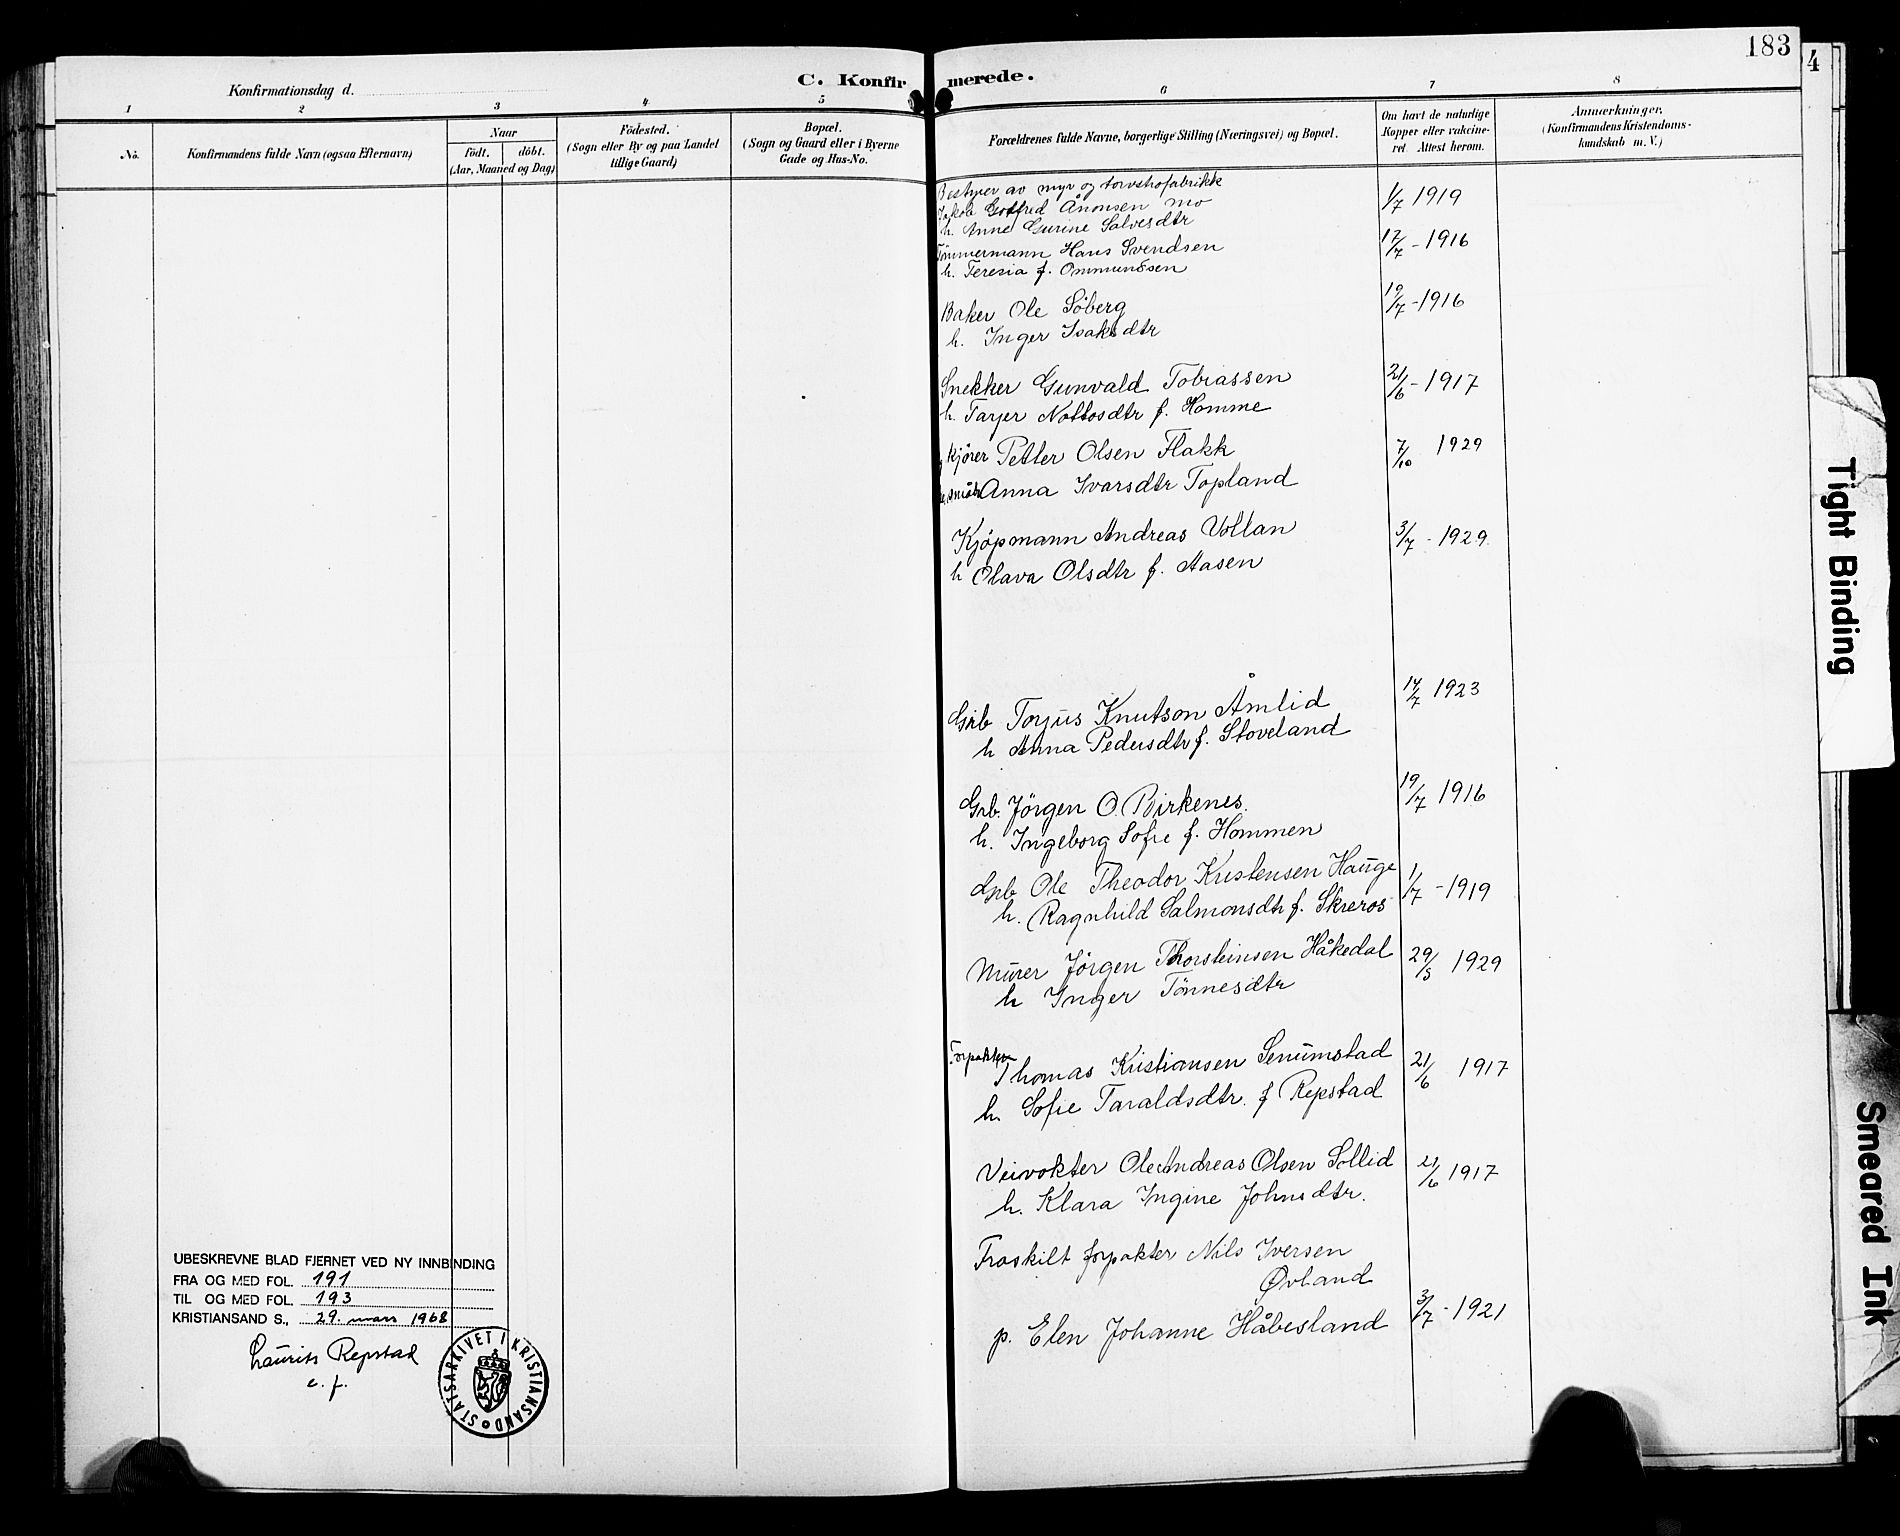 183
4
C. Konfirmerede.
Konfirmationsdag d.
1 2 3 4 5 6 7 8
No.
Konfirmandens fulde Navn (ogsaa Efternavn)
Naar
Födt. döbt.
(Aar, Maaned og Dag)
Födested.
(Sogn eller By og paa Landet
tillige Gaard)
Bopæl.
(Sogn og Gaard eller i Byerne
Gade og Hus-No.
Forældrenes fulde Navne, borgerlige Stilling (Næringsvei) og Bopæl.
Om havt de naturlige
Kopper eller vakcine-
ret. Attest herom.
Anmærkninger.
(Konfirmandens Kristendoms-
kundskab m. V.)
Bestyrer av myr og torvstrøfabrikk
Jakob Gotfred Ånonsen Mo 1/7 1919
h. Anne Gurine Salvesdtr
Tømmermann Hans Svendsen 12/7 - 1916
h. Teresia f. Ommundsen
Baker Ole Söberg 19/7 - 1916
h. Inger Isaksdtr
Snekker Gunvald Tobiassen 21/6 - 1917
h. Tarjer Nottosdtr f. Homme
kjörer Petter Olsen Flakk 7/10 1929
Anna Ivarsdtr Topland
Kjöpmann Andreas Vollan 3/7 - 1929
h Olava Olsdtr f. Aasen
Grb Torjus Knutson Åmlid 14/7 1923
h Anna Pedersdtr f. Stoveland
Grb. Jörgen O. Birkenes. 19/7 1916
h. Ingeborg Sofie f. Hommen
Grb Ole Theodor Kristensen Hauge 1/7 - 1919
h. Ragnhild Salmonsdtr f. Skreros
Murer Jörgen Thorsteinsen Håkedal 29/5 1929
h Inger Tönnesdtr
Forpakter
Thomas Kristiansen Senumstad 21/6 1917
h. Sofie Taraldsdtr. f Repstad
Veivokter Ole Andreas Olsen Sollid 21/6 1917
h. Klara Ingine Johnsdtr.
Fraskilt forpakter Nils Iversen
Øvland
p. Elen Johanne Håbesland 3/7 - 1921
UBESKREVNE BLAD FJERNET VED NY INNBINDING
FRA OG MED FOL. 191
TIL OG MED FOL. 193
KRISTIANSAND S., 29. mars 1968
Laurits Repstad
e. f.
STATSARKIVET I KRISTIANSAND
Tight Binding
Smeared Ink